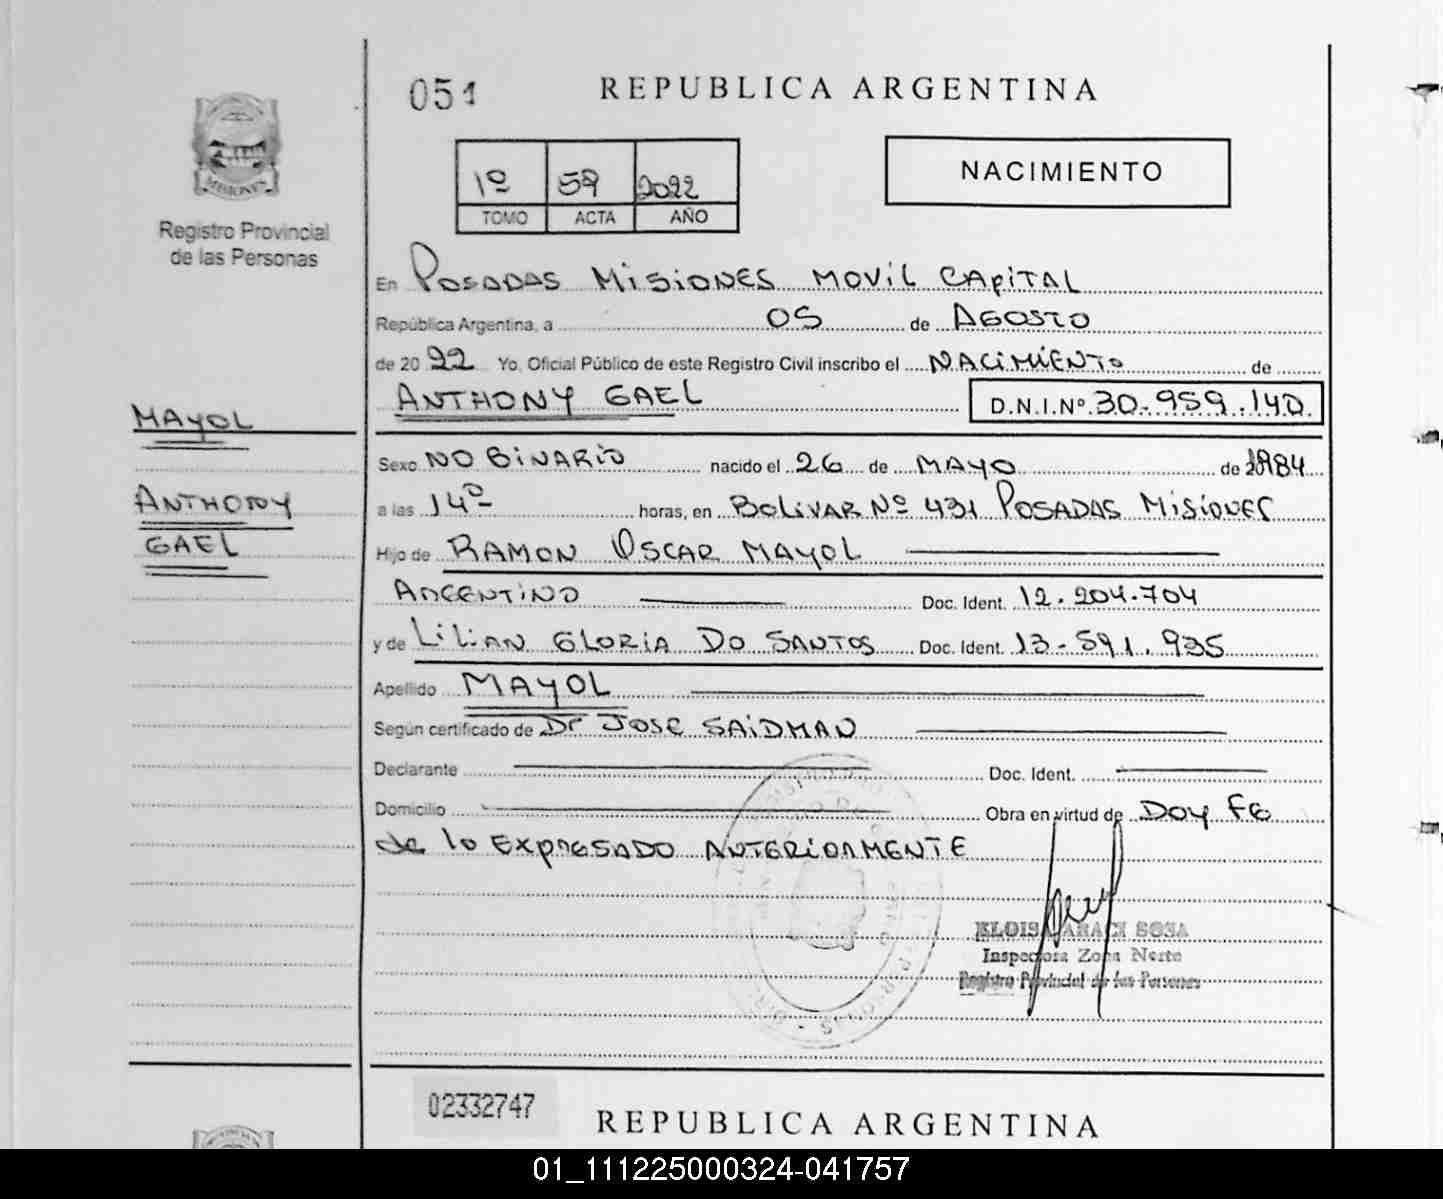 051
REPUBLICA ARGENTINA
1º 59 2022
TOMO ACTA AÑO
NACIMIENTO
MISIONES
Registro Provincial
de las Personas
En POSADAS MISIONES MOVIL CAPITAL
República Argentina, a 05 de AGOSTO
de 20 22 Yo, Oficial Público de este Registro Civil inscribo el NACIMIENTO de
ANTHONY GAEL D.N.I.Nº 30.959.140
MAYOL
Sexo NO BINARIO nacido el 26 de MAYO de 1984
ANTHONY
a las 14º horas, en BOLIVAR Nº 431 POSADAS MISIONES
GAEL
Hijo de RAMON OSCAR MAYOL
ARGENTINO Doc. Ident. 12.204.704
y de LILIAN GLORIA DO SANTOS Doc. Ident. 13.591.935
Apellido MAYOL
Según certificado de Dr JOSE SAIDMAN
Declarante Doc. Ident.
Domicilio Obra en virtud de DOY FE
de lo EXPRESADO ANTERIORMENTE
SOSA
Inspectora Zona Norte
Registro Provincial de las Personas
02332747
REPUBLICA ARGENTINA
01_111225000324-041757